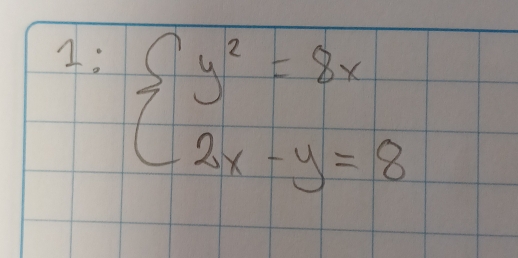 1: { y² = 8x
2x - y = 8